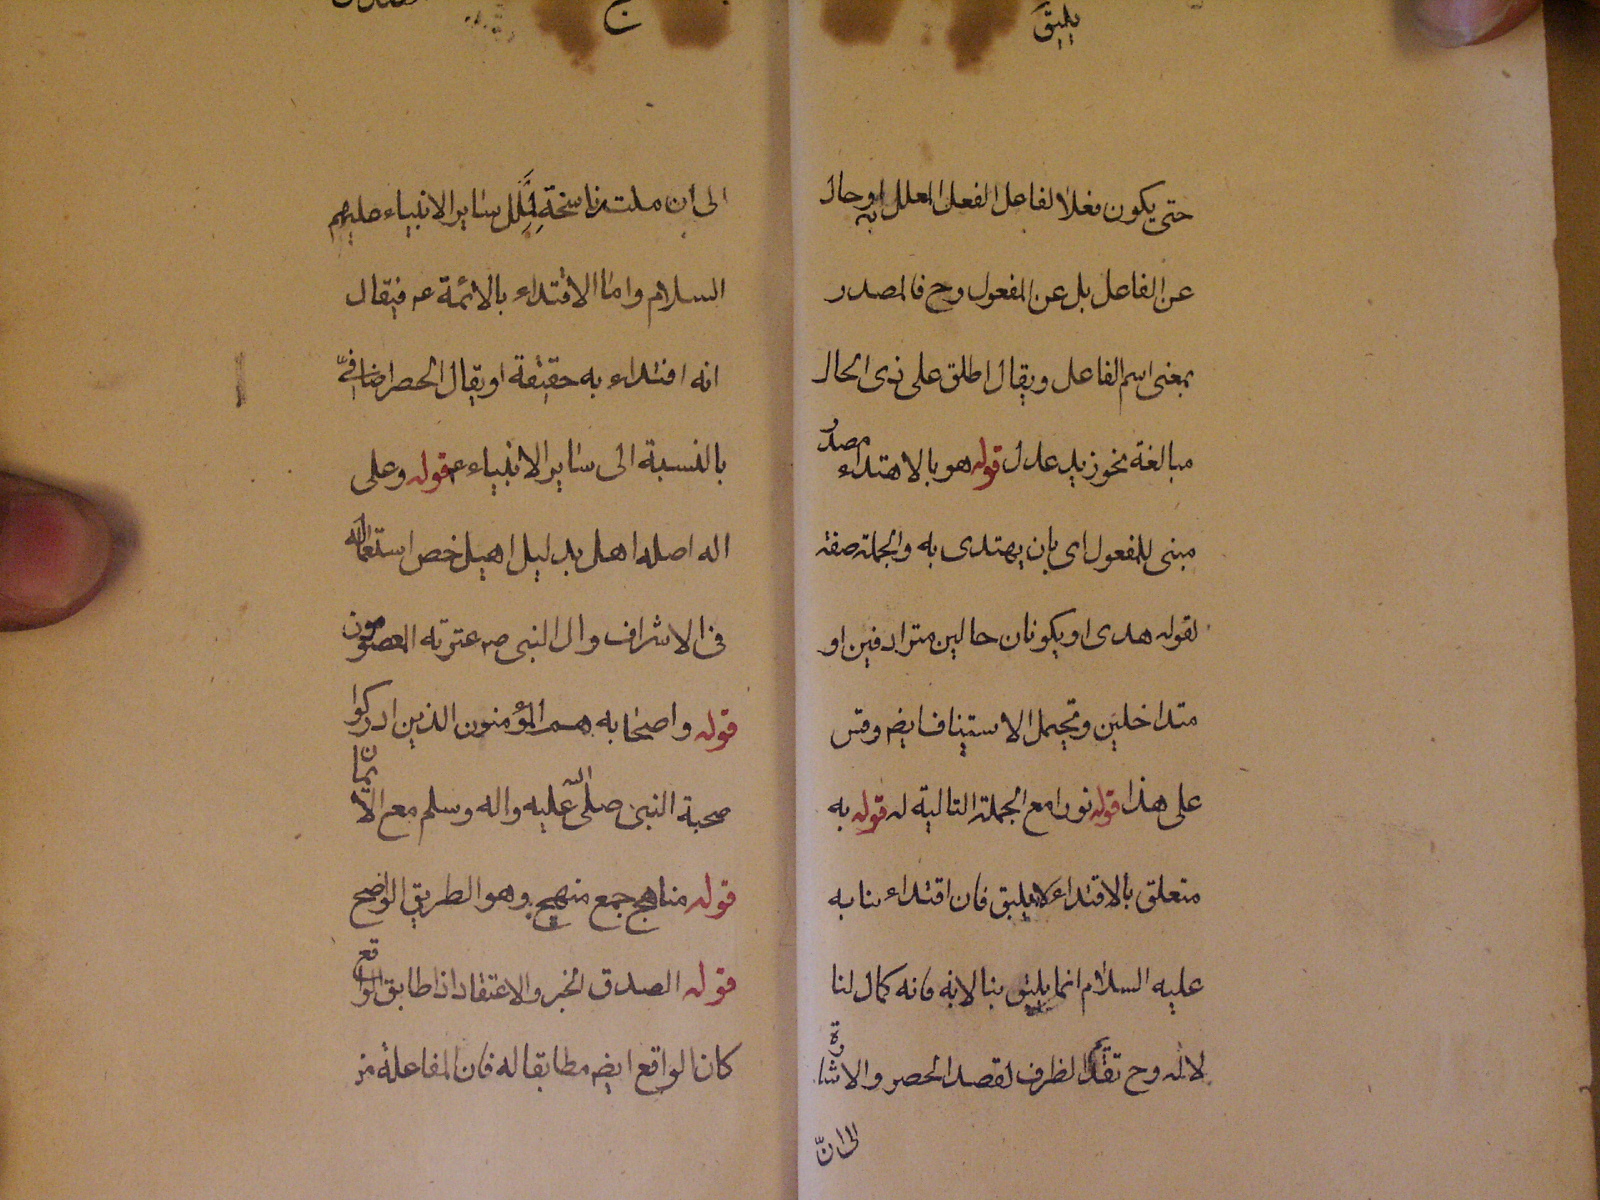 يليق
حتى يكون فعلا لفاعل الفعل المعلل به او حال
عن الفاعل بل عن المفعول وح فالمصدر
بمعنى اسم الفاعل ويقال اطلق على ذى الحال
مبالغة نحو زيد عدل قوله هو بالاهتداء مصدر
مبنى للمفعول اى بان يهتدى به والجملة صفة
لقوله هدى او يكونان حالين مترادفين او
متداخلين ويحتمل الاستيناف ايضا وقس
على هذا قوله نورا مع الجملة التالية له قوله به
متعلق بالاقتداء لا بيليق فان اقتداءنا به
عليه السلام انما يليق بنا لا به فانه كمال لنا
لا له وح تقديم الظرف لقصد الحصر والاشارة
الى ان
الى ان ملته ناسخة لملل ساير الانبياء عليهم
السلام واما الاقتداء بالائمة عم فيقال
انه اقتداء به حقيقة او يقال الحصر اضافى
بالنسبة الى ساير الانبياء عم قوله وعلى
اله اصله اهل بدليل اهيل خص استعماله
فى الاشراف وال النبى ص عترته المعصومون
قوله واصحابه هم المؤمنون الذين ادركوا
صحبة النبى صلى الله عليه واله وسلم مع الايمان
قوله مناهج جمع منهج وهو الطريق الواضح
قوله الصدق الخبر والاعتقاد اذا طابق الواقع
كان الواقع ايضا مطابقا له فان المفاعلة من